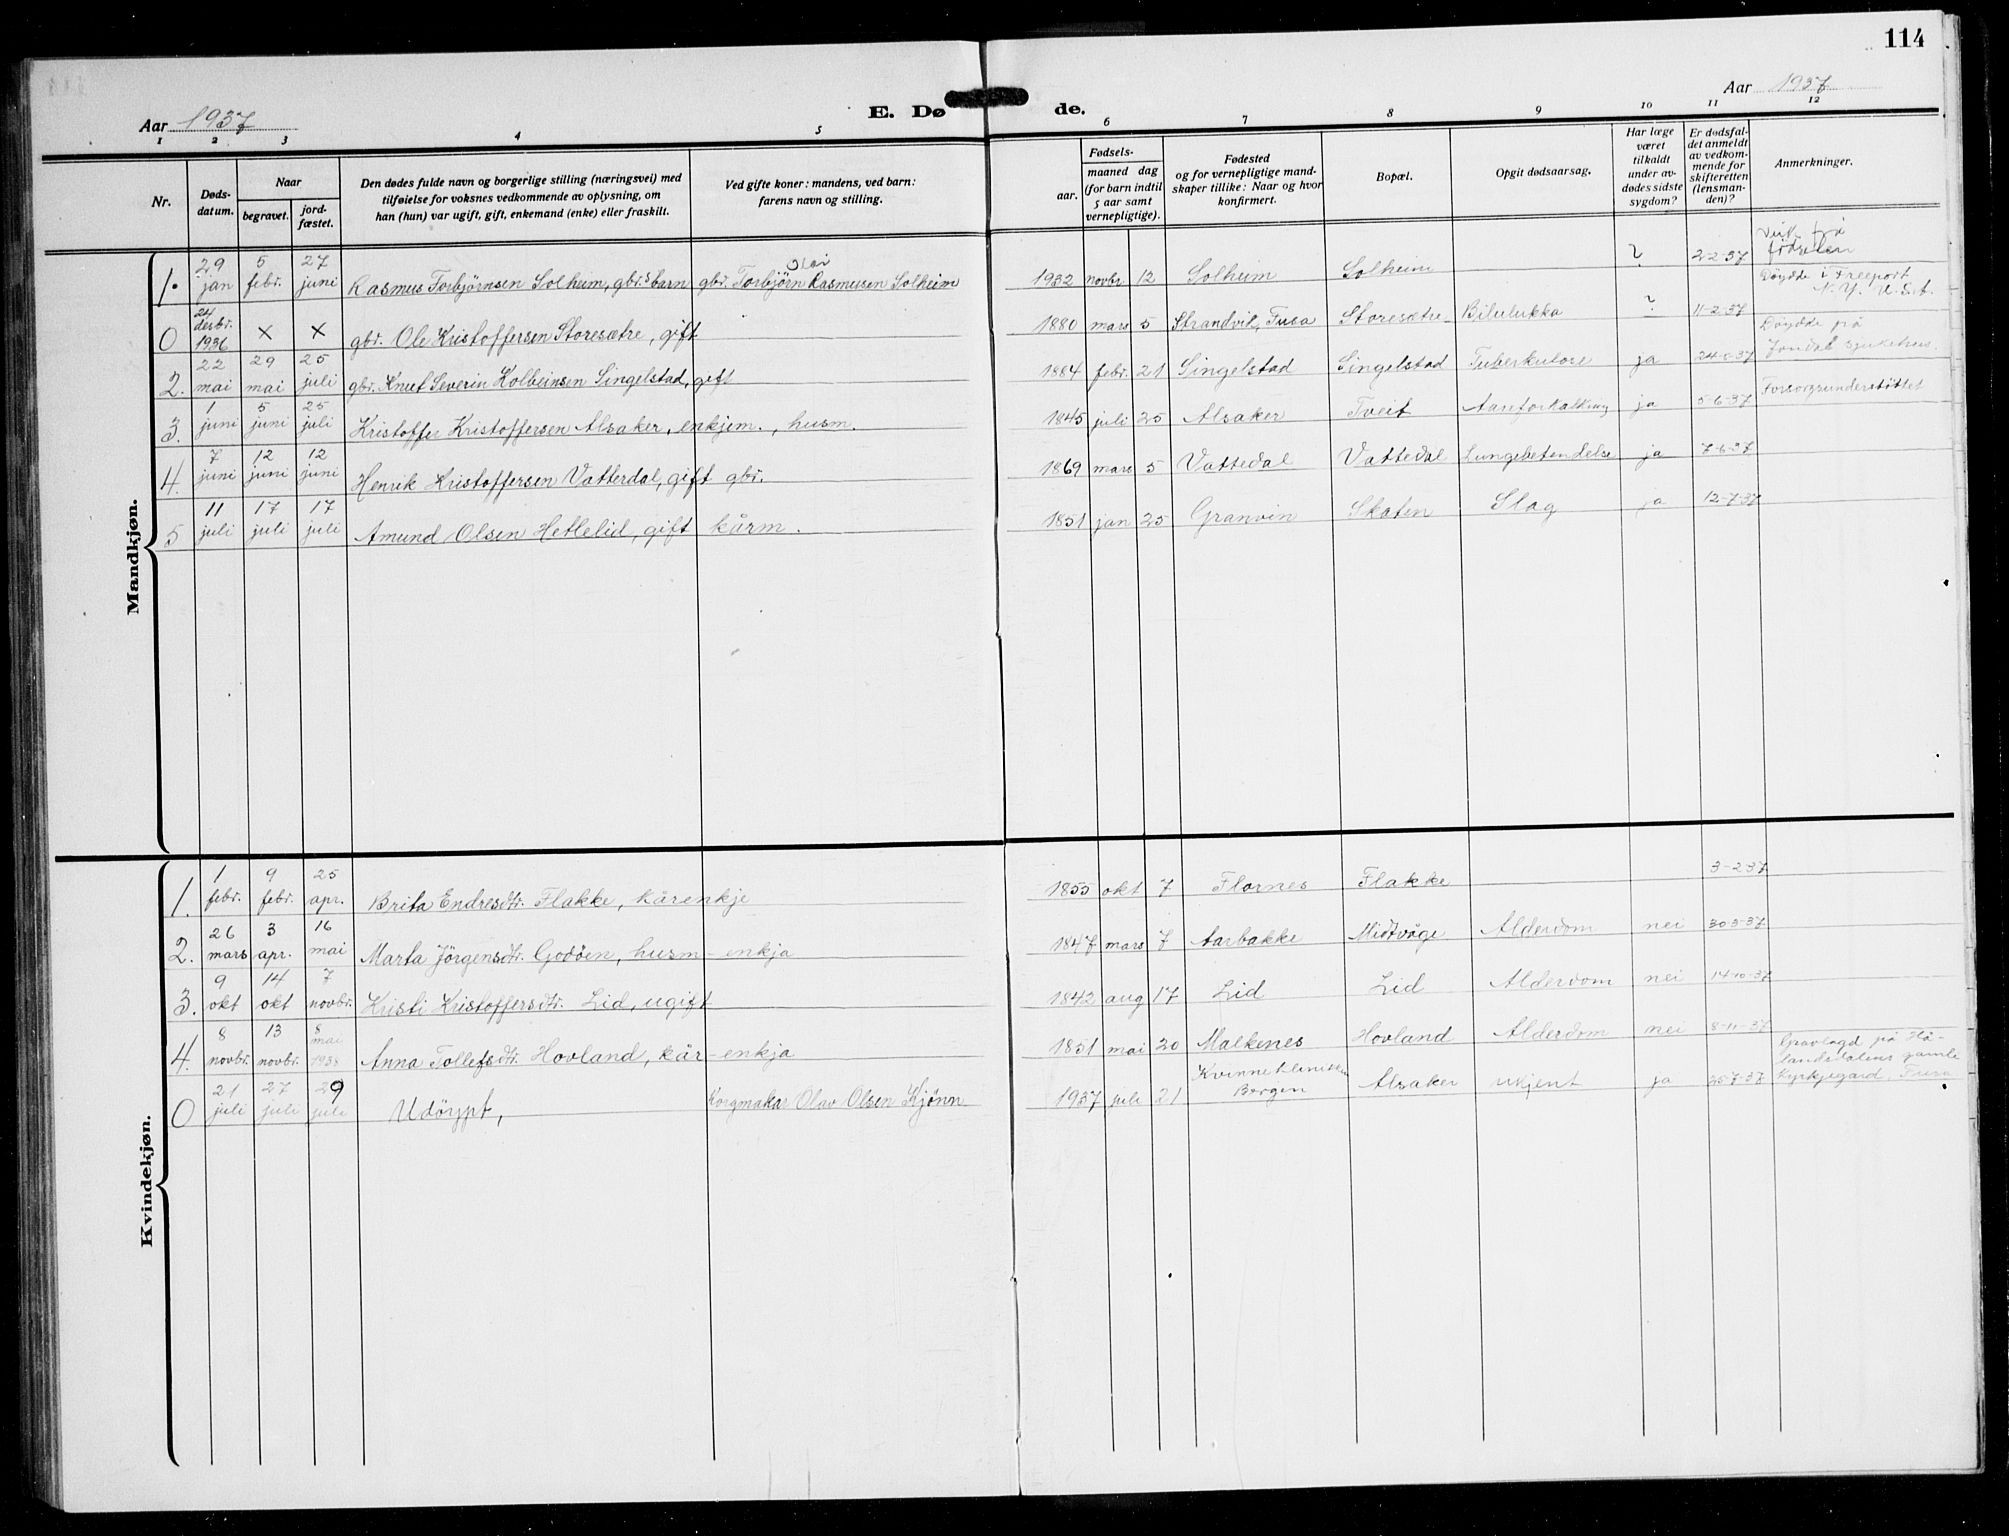 114
Aar 1937
E. Dø de.
Aar 1937
1 2 3 4 5 6 7 8 9 10 11 12
Nr.
Døds-
datum.
Naar
begravet.
jord-
fæstet.
Den dødes fulde navn og borgerlige stilling (næringsvei) med
tilføielse for voksnes vedkommende av oplysning, om
han (hun) var ugift, gift, enkemand (enke) eller fraskilt.
Ved gifte koner: mandens, ved barn:
farens navn og stilling.
Fødsels-
aar.
maaned dag
(for barn indtil
5 aar samt
vernepligtige).
Fødested
og for vernepligtige mand-
skaper tillike: Naar og hvor
konfirmert.
Bopæl.
Opgit dødsaarsag.
Har læge
været
tilkaldt
under av-
dødes sidste
sygdom?
Er dødsfal-
det anmeldt
av vedkom-
mende for
skifteretten
(lensman-
den)?
Anmerkninger.
Mandkjøn.
1. 29 jan 5 febr. 27 juni Rasmus Torbjørnsen Solheim, gbr.s barn gbr. Torbjörn Olai Rasmusen Solheim 1932 novbr 12 Solheim Solheim ? 2-2-37 Veik frå födselen
0 24 desbr. 1936 × × gbr. Ole Kristoffersen Storesætre, gift 1880 mars 5 Strandvik, Fusa Storesætre Bilulukka ? 11-2-37 Döydde i Freeport N.Y. U.S.A.
2. 22 mai 29 mai 25 juli gbr. Knut Severin Kolbeinsen Singelstad, gift 1884 febr. 21 Singelstad Singelstad Tuberkulose ja 37 Döydde på Jondal sjukehus.
3. 1 juni 5 juni 25 juli Kristoffer Kristoffersen Alsaker, enkjem., husm. 1845 juli 25 Alsaker Tveit Aareforkalkning ja 5-6-37 Forsorgsunderstöttet
4. 7 juni 12 juni 12 juni Henrik Kristoffersen Vatterdal, gift gbr. 1869 mars 5 Vattedal Vattedal Lungebetendelse ja 7-6-37
5 11 juli 17 juli 17 juli Amund Olsen Hetlelid, gift kårm. 1851 jan 25 Granvin Skaten Slag ja 12-7-37
Kvindekjøn.
1. 1 febr. 9 febr. 25 apr. Brita Endresdtr. Flakke, kårenkje 1855 okt 7 Flornes Flakke 3-2-37
2. 26 mars 3 apr. 16 mai Marta Jörgensdtr. Godöen, husm-enkja 1847 mars 7 Aarbakke Midtvåge Alderdom nei 30-3-37
3. 9 okt 14 okt 7 novbr. Kristi Kristoffersdtr. Lid, ugift 1842 aug 17 Lid Lid Alderdom nei 14-10-37
4. 8 novbr. 13 novbr. 8 mai 1938 Anna Tollefsdtr. Hovland, kår-enkja 1851 mai 20 Malkenes Hovland Alderdom nei 8-11-37
0 21 juli 27 juli 29 juli Udöypt, Korgmakar Olav Olsen Kjönn 1937 juli 21 Kvinneklinikken Bergen Alsaker ukjent ja 25-7-37 Gravlagd på Hå-
landsdalens gamle
Kyrkjegard, Fusa